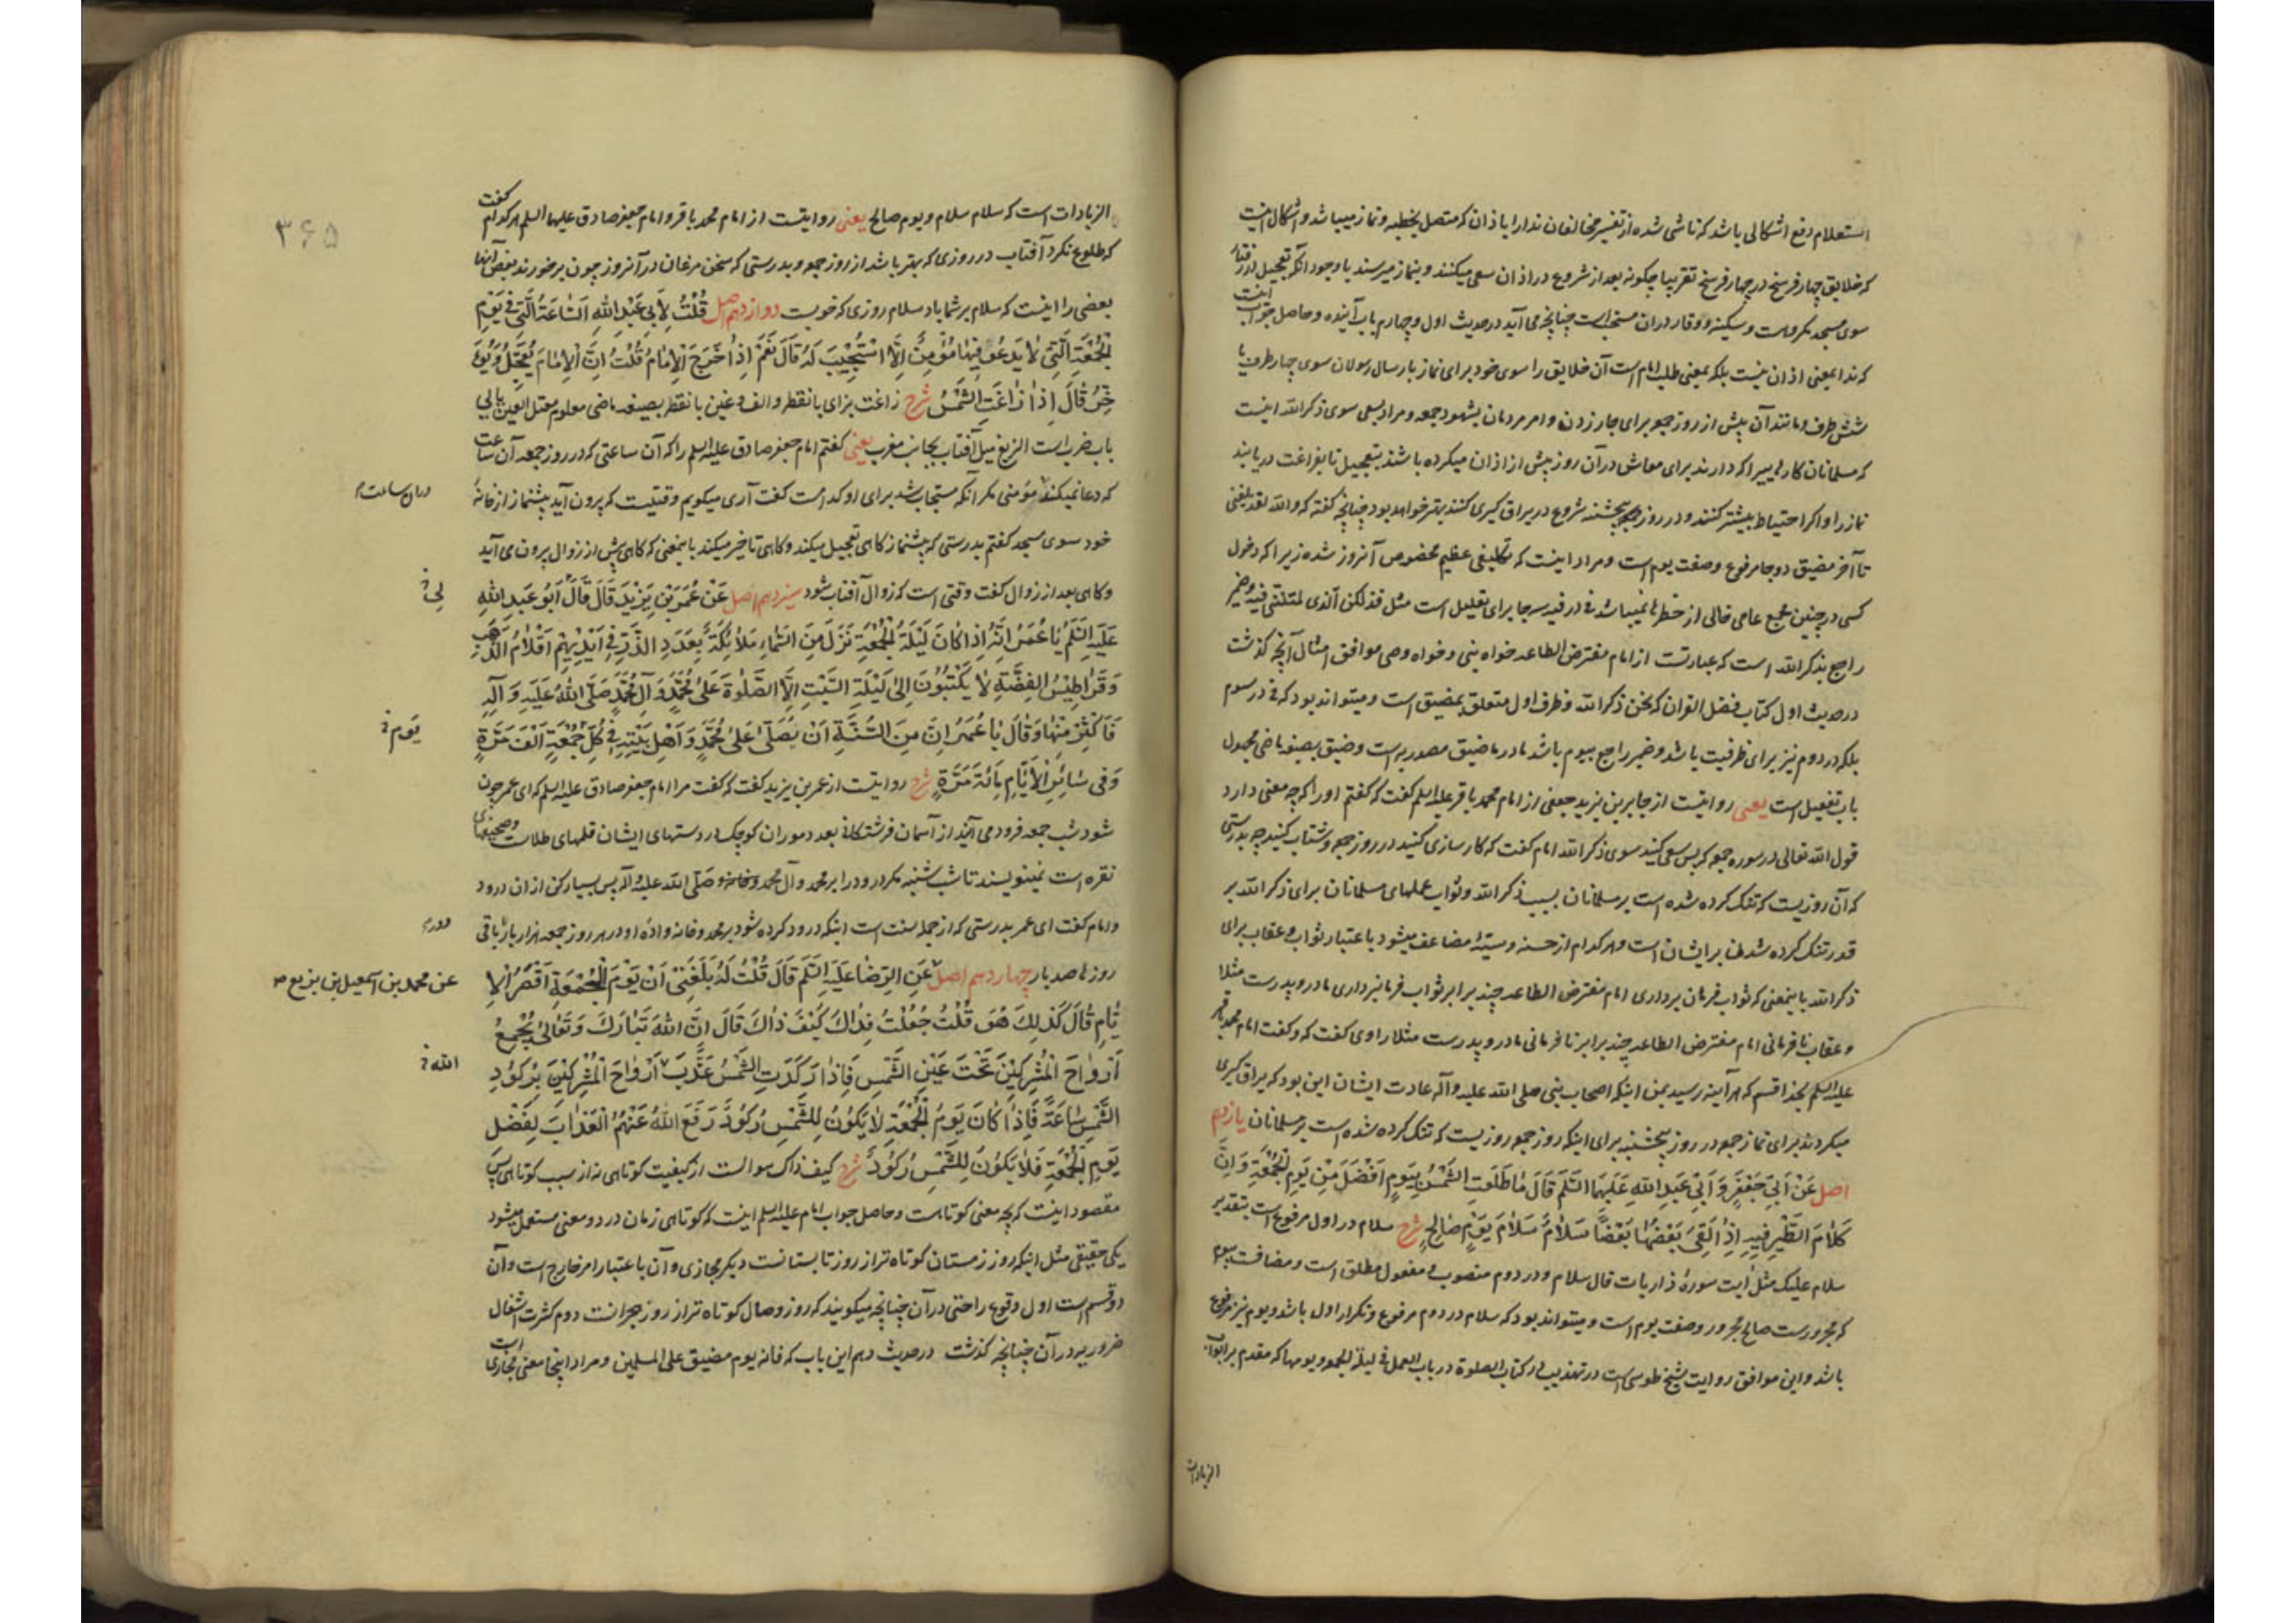 استعلام دفع اشکالی باشد که ناشی شده از تفسیر مخالفان ندا را باذان که متصل بخطبه و نماز میباشد و اشکال اینست
که خلایق چهار فرسخ در چهار فرسخ تقریبا چگونه بعد از شروع در اذان سعی میکنند و بنماز میرسند با وجود آنکه تعجیل در رفتار
سوی مسجد مکروهست و سکینه و وقار دران مستحب است چنانچه می آید در حدیث اول و چهارم باب آینده و حاصل جواب اینست
که ندا بمعنی اذان نیست بلکه بمعنی طلب امام است آن خلایق را سوی خود برای نماز بارسال رسولان سوی چهار طرف یا
شش طرف و مانند آن پیش از روز جمعه برای جار زدن و امر مردمان بشهود جمعه و مراد بسعی سوی ذکر الله اینست
که مسلمانان کارهایی را که دارند برای معاش در آن روز پیش از اذان میکرده باشند بتعجیل تا بفراغت دریابند
نماز را و اگر احتیاط بیشتر کنند و در روز پنجشنبه شروع در یراق گیری کنند بهتر خواهد بود چنانچه گفته که والله لقد بلغنی
تا آخر مضیق دو جا مرفوع و صفت یوم است و مراد اینست که تکلیفی عظیم مخصوص آنروز شده زیرا که دخول
کسی در چنین مجمع عامی خالی از خطرها نمیباشد فی در فیه سر جا برای تعلیل است مثل فذلکن الذی لمتننی فیه و ضمیر
راجع بذکر الله است که عبارتست از امام مفترض الطاعه خواه نبی و خواه وصی موافق امثال آنچه گذشت
در حدیث اول کتاب فضل القرآن که نحن ذکر الله و ظرف اول متعلق بمضیق است و میتواند بود که فی در سوم
بلکه در دوم نیز برای ظرفیت باشد و ضمیر راجع بیوم باشد ما در ما ضیق مصدریه است و ضیق بصیغه ماضی مجهول
باب تفعیل است یعنی روایتست از جابر بن یزید جعفی از امام محمد باقر علیه السلم گفت که گفتم او را که چه معنی دارد
قول الله تعالی در سوره جمعه که پس سعی کنید سوی ذکر الله امام گفت که کارسازی کنید در روز جمعه و شتاب کنید چه بدرستی
که آن روزیست که تنگ کرده شده است بر مسلمانان بسبب ذکر الله و ثواب عملهای مسلمانان برای ذکر الله بر
قدر تنگ کرده شدنها بر ایشانست و هر کدام از حسنه و سیئه مضاعف میشود باعتبار ثواب و عقاب برای
ذکر الله باینمعنی که ثواب فرمان برداری امام مفترض الطاعه چند برابر ثواب فرمانبرداری مادر و پدرست مثلا
و عقاب نافرمانی امام مفترض الطاعه چند برابر نافرمانی مادر و پدرست مثلا راوی گفت که و گفت امام محمد باقر
علیه السلم بخدا قسم که هر آینه رسید بمن اینکه اصحاب نبی صلی الله علیه وآله عادت ایشان این بود که یراق گیری
میکردند برای نماز جمعه در روز پنجشنبه برای اینکه روز جمعه روزیست که تنگ کرده شده است بر مسلمانان یازدهم
اصل عَنْ اَبی جَعْفَرٍ وَ اَبی عَبْدِ اللهِ عَلَیْهِمَا السَّلَم قَالَ مَا طَلَعَتِ الشَّمْسُ بِیَوْمٍ اَفْضَلَ مِنْ یَوْمِ الْجُمُعَةِ وَ اِنَّ
کَلَامَ الطَّیْرِ فِیهِ اِذَا لَقِیَ بَعْضُهَا بَعْضًا سَلَامٌ سَلَامٌ یَوْمٌ صَالِحٌ شرح سلام در اول مرفوع است بتقدیر
سلام علیک مثل آیت سورهٔ ذاریات قال سلام و در دوم منصوب و مفعول مطلق است و مضافست بیوم
که مجرورست صالح مجرور و صفت یوم است و میتواند بود که سلام در دوم مرفوع و تکرار اول باشد و یوم نیز مرفوع
باشد و این موافق روایت شیخ طوسی است در تهذیب در کتاب الصلوة در باب العمل فی لیلة الجمعه و یومها که مقدم بر ابواب
الزیادات
۳۶۵
الزیادات است که سلام سلام و یوم صالح یعنی روایتست از امام محمد باقر و امام جعفر صادق علیهما السلم هر کدام گفت
که طلوع نکرد آفتاب در روزی که بهتر باشد از روز جمعه و بدرستی که سخن مرغان در آنروز چون برخورند بعض آنها
بعضی را اینست که سلام بر شما باد سلام روزی که خوبست دوازدهم اصل قُلْتُ لِاَبی عَبْدِ اللهِ السَّاعَةُ الَّتی فی یَوْمِ
الْجُمُعَةِ الَّتی لَا یَدْعُو فِیهَا مُؤْمِنٌ اِلَّا اسْتُجِیبَ لَهُ قَالَ نَعَمْ اِذَا خَرَجَ الْاِمَامُ قُلْتُ اِنَّ الْاِمَامَ یُعَجِّلُ وَ یُؤَ
خِّرُ قَالَ اِذَا زَاغَتِ الشَّمْسُ شرح زاغت بزای با نقطه و الف و غین با نقطه بصیغه ماضی معلوم معتل العین یایی
باب ضرب است الزیغ میل آفتاب بجانب مغرب یعنی گفتم امام جعفر صادق علیه السلم را که آن ساعتی که در روز جمعه آن ساعت
که دعا نمیکند مؤمنی مگر آنکه مستجاب شد برای او کدامست گفت آری میگویم وقتیست که بیرون آید پیشنماز از خانهٔ
دران ساعت م
خود سوی مسجد گفتم بدرستی که پیشنماز گاهی تعجیل میکند و گاهی تاخیر میکند باینمعنی که گاهی پیش از زوال بیرون می آید
و گاهی بعد از زوال گفت وقتی است که زوال آفتاب شود سیزدهم اصل عَنْ عُمَرَ بْنِ یَزِیدَ قَالَ قَالَ اَبُو عَبْدِ اللهِ
لی
عَلَیْهِ السَّلَم یَا عُمَرُ اِنَّهُ اِذَا کَانَ لَیْلَةُ الْجُمُعَةِ نَزَلَ مِنَ السَّمَاءِ مَلَائِکَةٌ بِعَدَدِ الذَّرِّ فِی اَیْدِیهِمْ اَقْلَامُ الذَّهَبِ
وَ قَرَاطِیسُ الْفِضَّةِ لَا یَکْتُبُونَ اِلٰی لَیْلَةِ السَّبْتِ اِلَّا الصَّلٰوةَ عَلٰی مُحَمَّدٍ وَ آلِ مُحَمَّدٍ صَلَّی اللهُ عَلَیْهِ وَ آلِهِ
فَاَکْثِرْ مِنْهَا وَ قَالَ یَا عُمَرُ اِنَّ مِنَ السُّنَّةِ اَنْ یُصَلّٰی عَلٰی مُحَمَّدٍ وَ اَهْلِ بَیْتِهِ فی کُلِّ جُمُعَةٍ اَلْفَ مَرَّةٍ
یَوْم
وَ فی سَائِرِ الْاَیَّامِ مِائَةَ مَرَّةٍ شرح روایتست از عمر بن یزید گفت که گفت مرا امام جعفر صادق علیه السلم که ای عمر چون
شود شب جمعه فرود می آیند از آسمان فرشتگان بعدد موران کوچک در دستهای ایشان قلمهای طلاست و صحیفهای
نقره است نمینویسند تا شب شنبه مگر درود را بر محمد و آل محمد صلی الله علیه وآله پس بسیار کن از ان درود
و امام گفت ای عمر بدرستی که از جمله سنت است اینکه درود کرده شود بر محمد و خانه وادهٔ او در هر روز جمعه هزار بار باقی
و در
روزها صد بار چهاردهم اصل عَنِ الرِّضَا عَلَیْهِ السَّلَم قَالَ قُلْتُ لَهُ بَلَغَنی اَنَّ یَوْمَ الْجُمُعَةِ اَقْصَرُ الْاَ
عن محمد بن اسمعیل بن بزیع صح
یَّامِ قَالَ کَذٰلِکَ هُوَ قُلْتُ جُعِلْتُ فِدَاکَ کَیْفَ ذَاکَ قَالَ اِنَّ اللهَ تَبَارَکَ وَ تَعَالٰی یَجْمَعُ
اَرْوَاحَ الْمُشْرِکِینَ تَحْتَ عَیْنِ الشَّمْسِ فَاِذَا رَکَدَتِ الشَّمْسُ عَذَّبَ اَرْوَاحَ الْمُشْرِکِینَ بِرُکُودِ
الله
الشَّمْسِ سَاعَةً فَاِذَا کَانَ یَوْمُ الْجُمُعَةِ لَا یَکُونُ لِلشَّمْسِ رُکُودٌ رَفَعَ اللهُ عَنْهُمُ الْعَذَابَ لِفَضْلِ
یَوْمِ الْجُمُعَةِ فَلَا یَکُونُ لِلشَّمْسِ رُکُودٌ شرح کیف ذاک سوالست از کیفیت کوتاهی نه از سبب کوتاهی پس
مقصود اینست که بچه معنی کوتاهست و حاصل جواب امام علیه السلم اینست که کوتاهی زمان در دو معنی مستعمل میشود
یکی حقیقی مثل اینکه روز زمستان کوتاه تر از روز تابستانست دیگر مجازی و آن باعتبار امر خارج است و آن
دو قسم است اول وقوع راحتی در آن چنانچه میگویند که روز وصال کوتاه تر از روز هجرانست دوم کثرت اشغال
ضروریه در آن چنانچه گذشت در حدیث دهم این باب که فانه یوم مضیق علی المسلمین و مراد اینجا معنی مجازی است